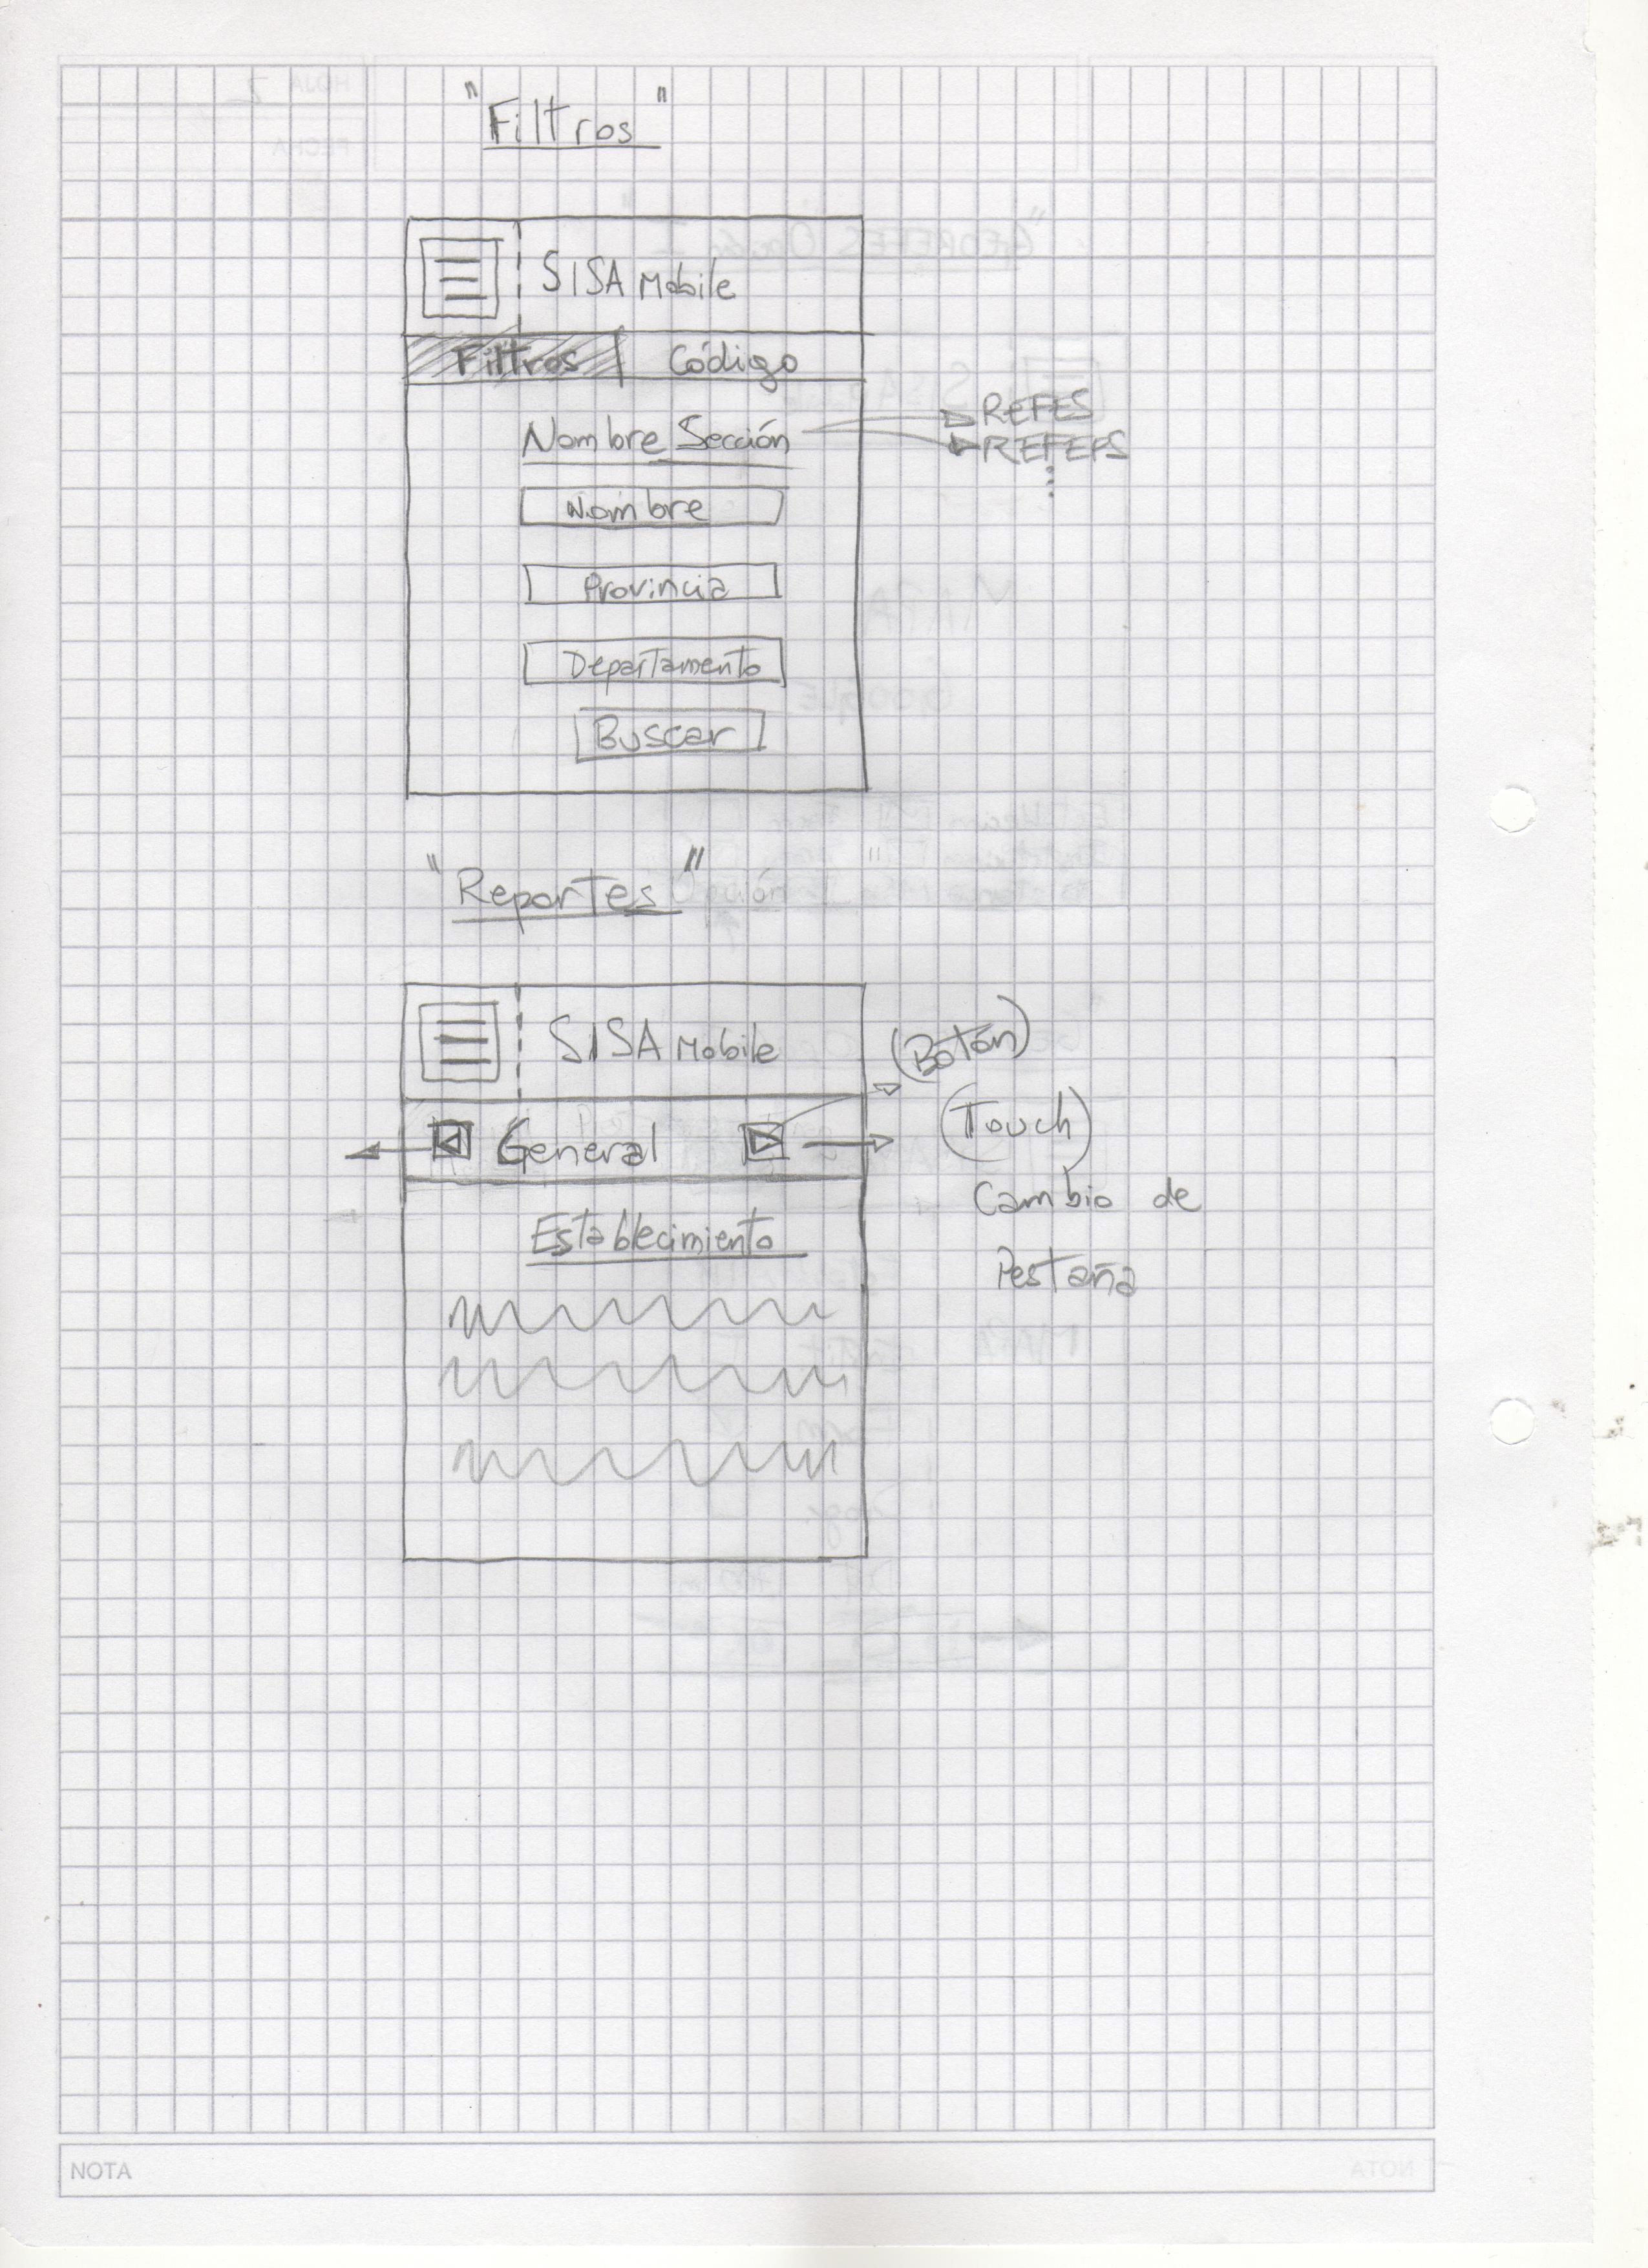 "Filtros"
SISA Mobile
Filtros Código
Nombre Sección
REFES
REFEPS
Nombre
Provincia
Departamento
Buscar
"Reportes"
SISA Mobile
(Botón)
General
(Touch)
Cambio de
Pestaña
Establecimiento
NOTA